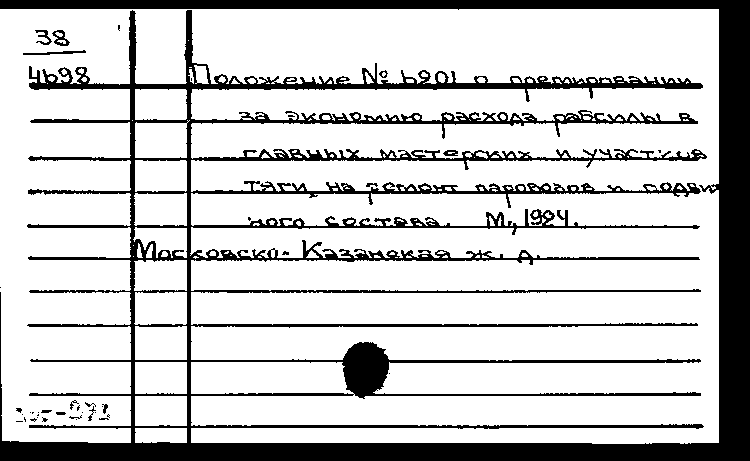 38
4698
Положение № 6201 о премировании
за экономию расхода рабсилы в
главных мастерских и участков
тяги, на ремонт паровозов и подвиж
ного состава. М., 1924.
Московско-Казанская ж. д.